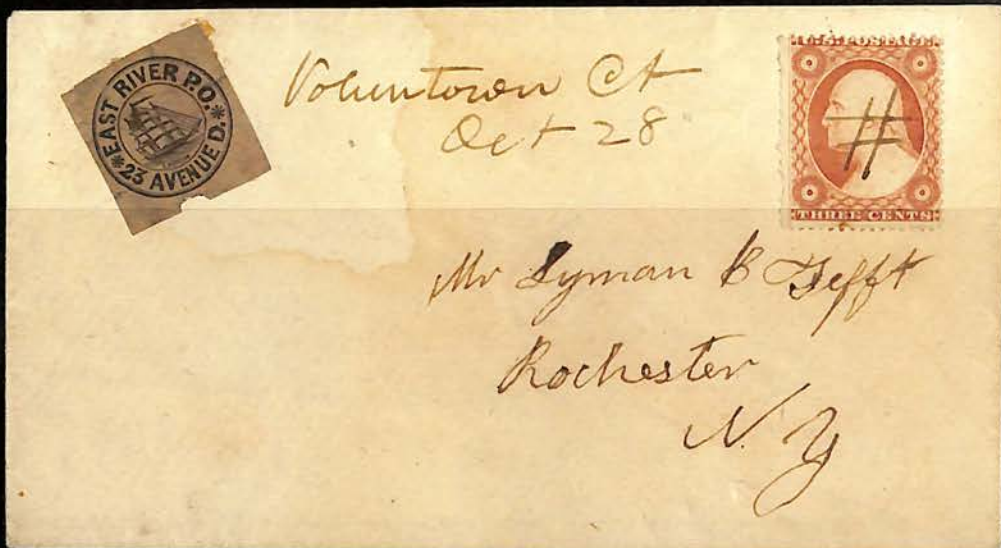 *EAST RIVER P.O.*
23 AVENUE D.
Voluntown Ct
Oct 28
U.S. POSTAGE
THREE CENTS
Mr Lyman B Tefft
Rochester
N. Y